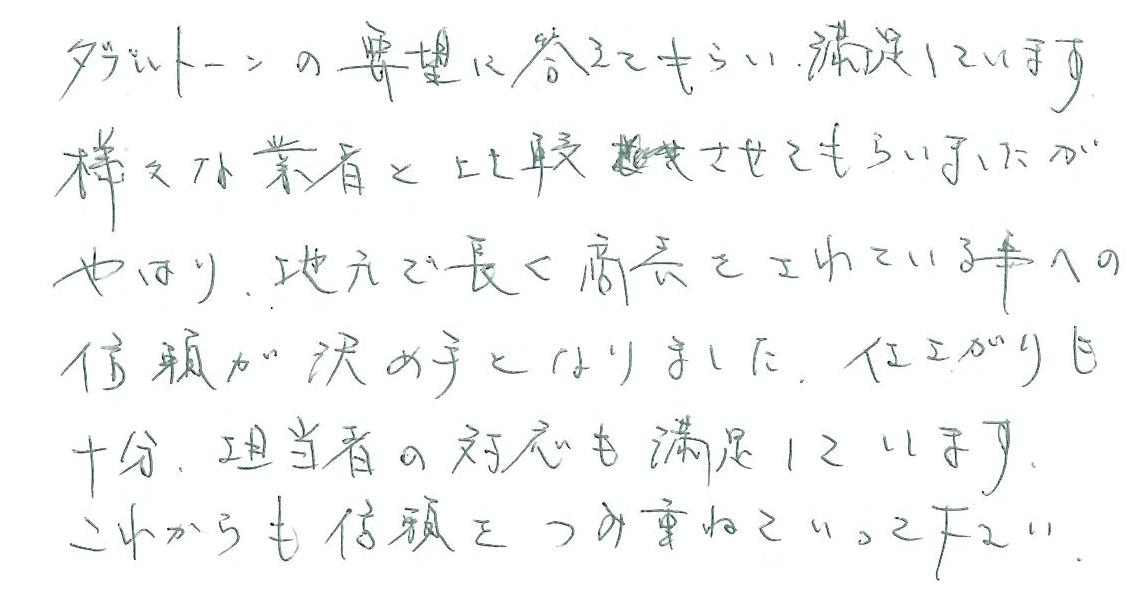 ダブルトーンの要望に答えてもらい、満足しています。
様々な業者と比較させてもらいましたが
やはり、地元で長く商売をされている事への
信頼が決め手となりました。仕上がりも
十分、担当者の対応も満足しています。
これからも信頼をつみ重ねていって下さい。